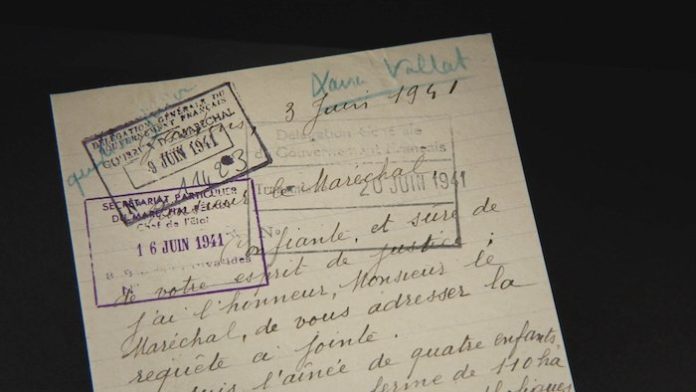 Xavier Vallat
3 Juin 1941
DÉLÉGATION GÉNÉRALE DU
GOUVERNEMENT FRANÇAIS
CABINET DU MARÉCHAL
9 JUIN 1941
N° 11423
Délégation Générale
du Gouvernement Français
20 JUIN 1941
No
Monsieur le Maréchal
SECRÉTARIAT PARTICULIER
DU MARÉCHAL PÉTAIN
Chef de l'État
16 JUIN 1941
Confiante, et sûre de
de votre esprit de justice ;
j'ai l'honneur, Monsieur le
Maréchal, de vous adresser la
requête ci jointe.
suis l'aînée de quatre enfants,
ferme de 110 ha